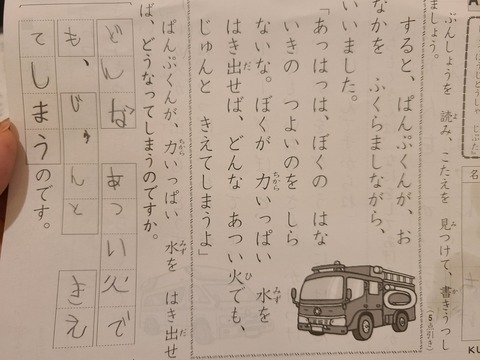 ぶんしょうを 読み、こたえを 見つけて、書きうつし
ましょう。
(5点引き)
すると、ぱんぷくんが、お
なかを ふくらましながら、
いいました。
「あっはっは、ぼくの はな
いきの つよいのを しら
ないな。ぼくが 力いっぱい 水を
はき出せば、どんな あつい火でも、
じゅんと きえてしまうよ」
ぱんぷくんが、力いっぱい 水を はき出せ
ば、どうなってしまうのですか。
どんな あつい火で
も、じゅんと きえ
てしまうのです。